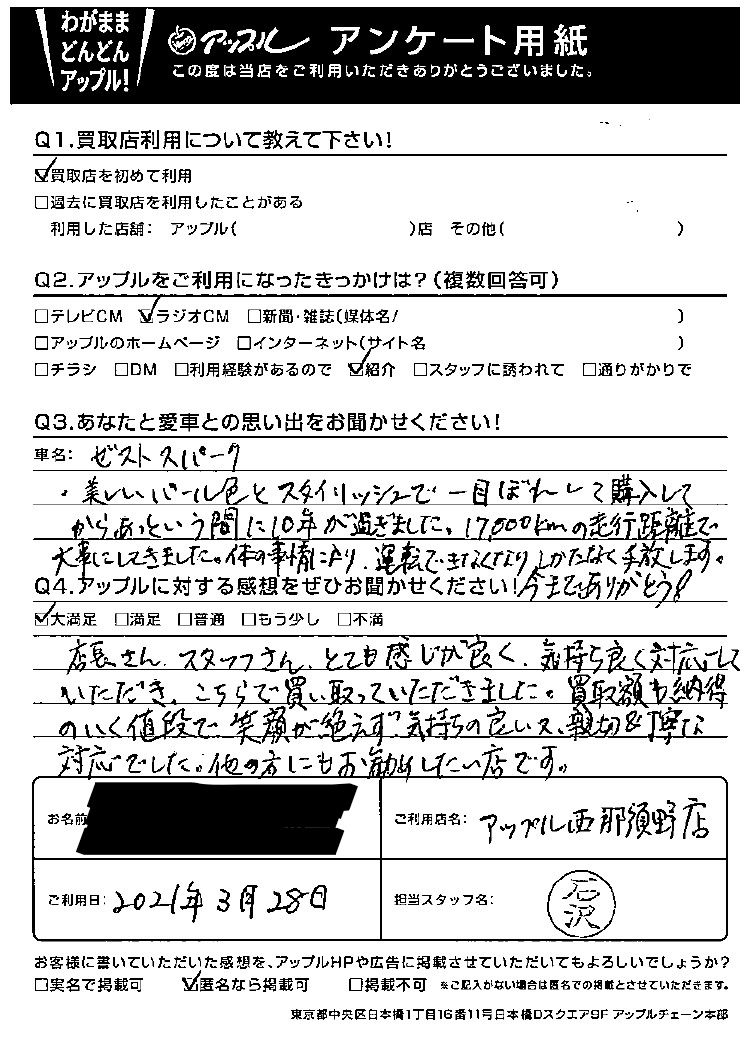 わがまま
どんどん
アップル!
アップル アンケート用紙
この度は当店をご利用いただきありがとうございました。
Q1.買取店利用について教えて下さい!
☑買取店を初めて利用
□過去に買取店を利用したことがある
利用した店舗: アップル( )店 その他( )
Q2.アップルをご利用になったきっかけは?(複数回答可)
□テレビCM ☑ラジオCM □新聞・雑誌(媒体名/ )
□アップルのホームページ □インターネット(サイト名 )
□チラシ □DM □利用経験があるので ☑紹介 □スタッフに誘われて □通りがかりで
Q3.あなたと愛車との思い出をお聞かせください!
車名: ゼスト スパーク
・美しいパール色とスタイリッシュで一目ぼれして購入して
からあっという間に10年が過ぎました。17,000kmの走行距離で
大事にしてきました。体の事情により、運転できなくなり しかたなく手放します。
今までありがとう!
Q4.アップルに対する感想をぜひお聞かせください!
☑大満足 □満足 □普通 □もう少し □不満
店長さん、スタッフさん、とても感じが良く、気持ち良く対応して
いただき、こちらで買い取っていただきました。買取額も納得
のいく値段で、笑顔が絶えず気持ちの良い 親切&丁寧な
対応でした。他の方にもお勧めしたい店です。
お名前
ご利用店名: アップル西那須野店
ご利用日: 2021年3月28日
担当スタッフ名: 石沢
お客様に書いていただいた感想を、アップルHPや広告に掲載させていただいてもよろしいでしょうか?
□実名で掲載可 ☑匿名なら掲載可 □掲載不可 ※ご記入がない場合は匿名での掲載とさせていただきます。
東京都中央区日本橋1丁目16番11号日本橋Dスクエア9F アップルチェーン本部